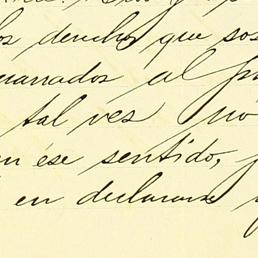 os derechos que sos
manados al
tal ves no
en ése sentido,
en declarar